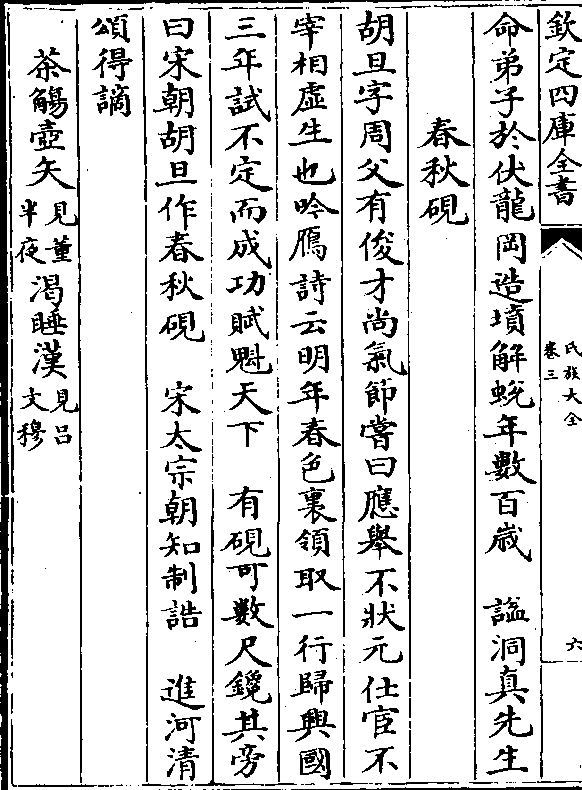 欽定四庫全書
氏族大全
卷三
六
命弟子於伏龍岡造墳解蛻年數百歲　諡洞真先生
春秋硯
胡旦字周父有俊才尚氣節嘗曰應舉不狀元仕宦不
宰相虛生也吟鴈詩云明年春色裏領取一行歸興國
三年試不定而成功賦魁天下　有硯可數尺鑱其旁
曰宋朝胡旦作春秋硯　宋太宗朝知制誥　進河清
頌得謫
茶觴壺矢見董半夜渴睡漢見吕文穆